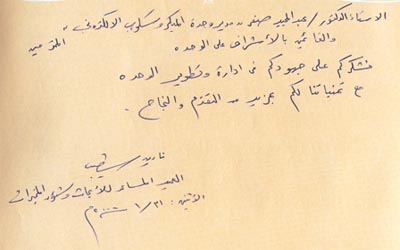 الاستاذ الدكتور / عبد المجيد صفر – مدير وحدة الميكروسكوب الالكتروني "
والقائمين بالأشراف على الوحده المقدمين
نشكركم على جهودكم فى ادارة وتطوير الوحده
مع تمنياتنا لكم بمزيد من التقدم والنجاح
نادية
العميد المساعد للأبحاث وشئون
الأثنين : ٣١ / ١ / ٢٠٠٠ م